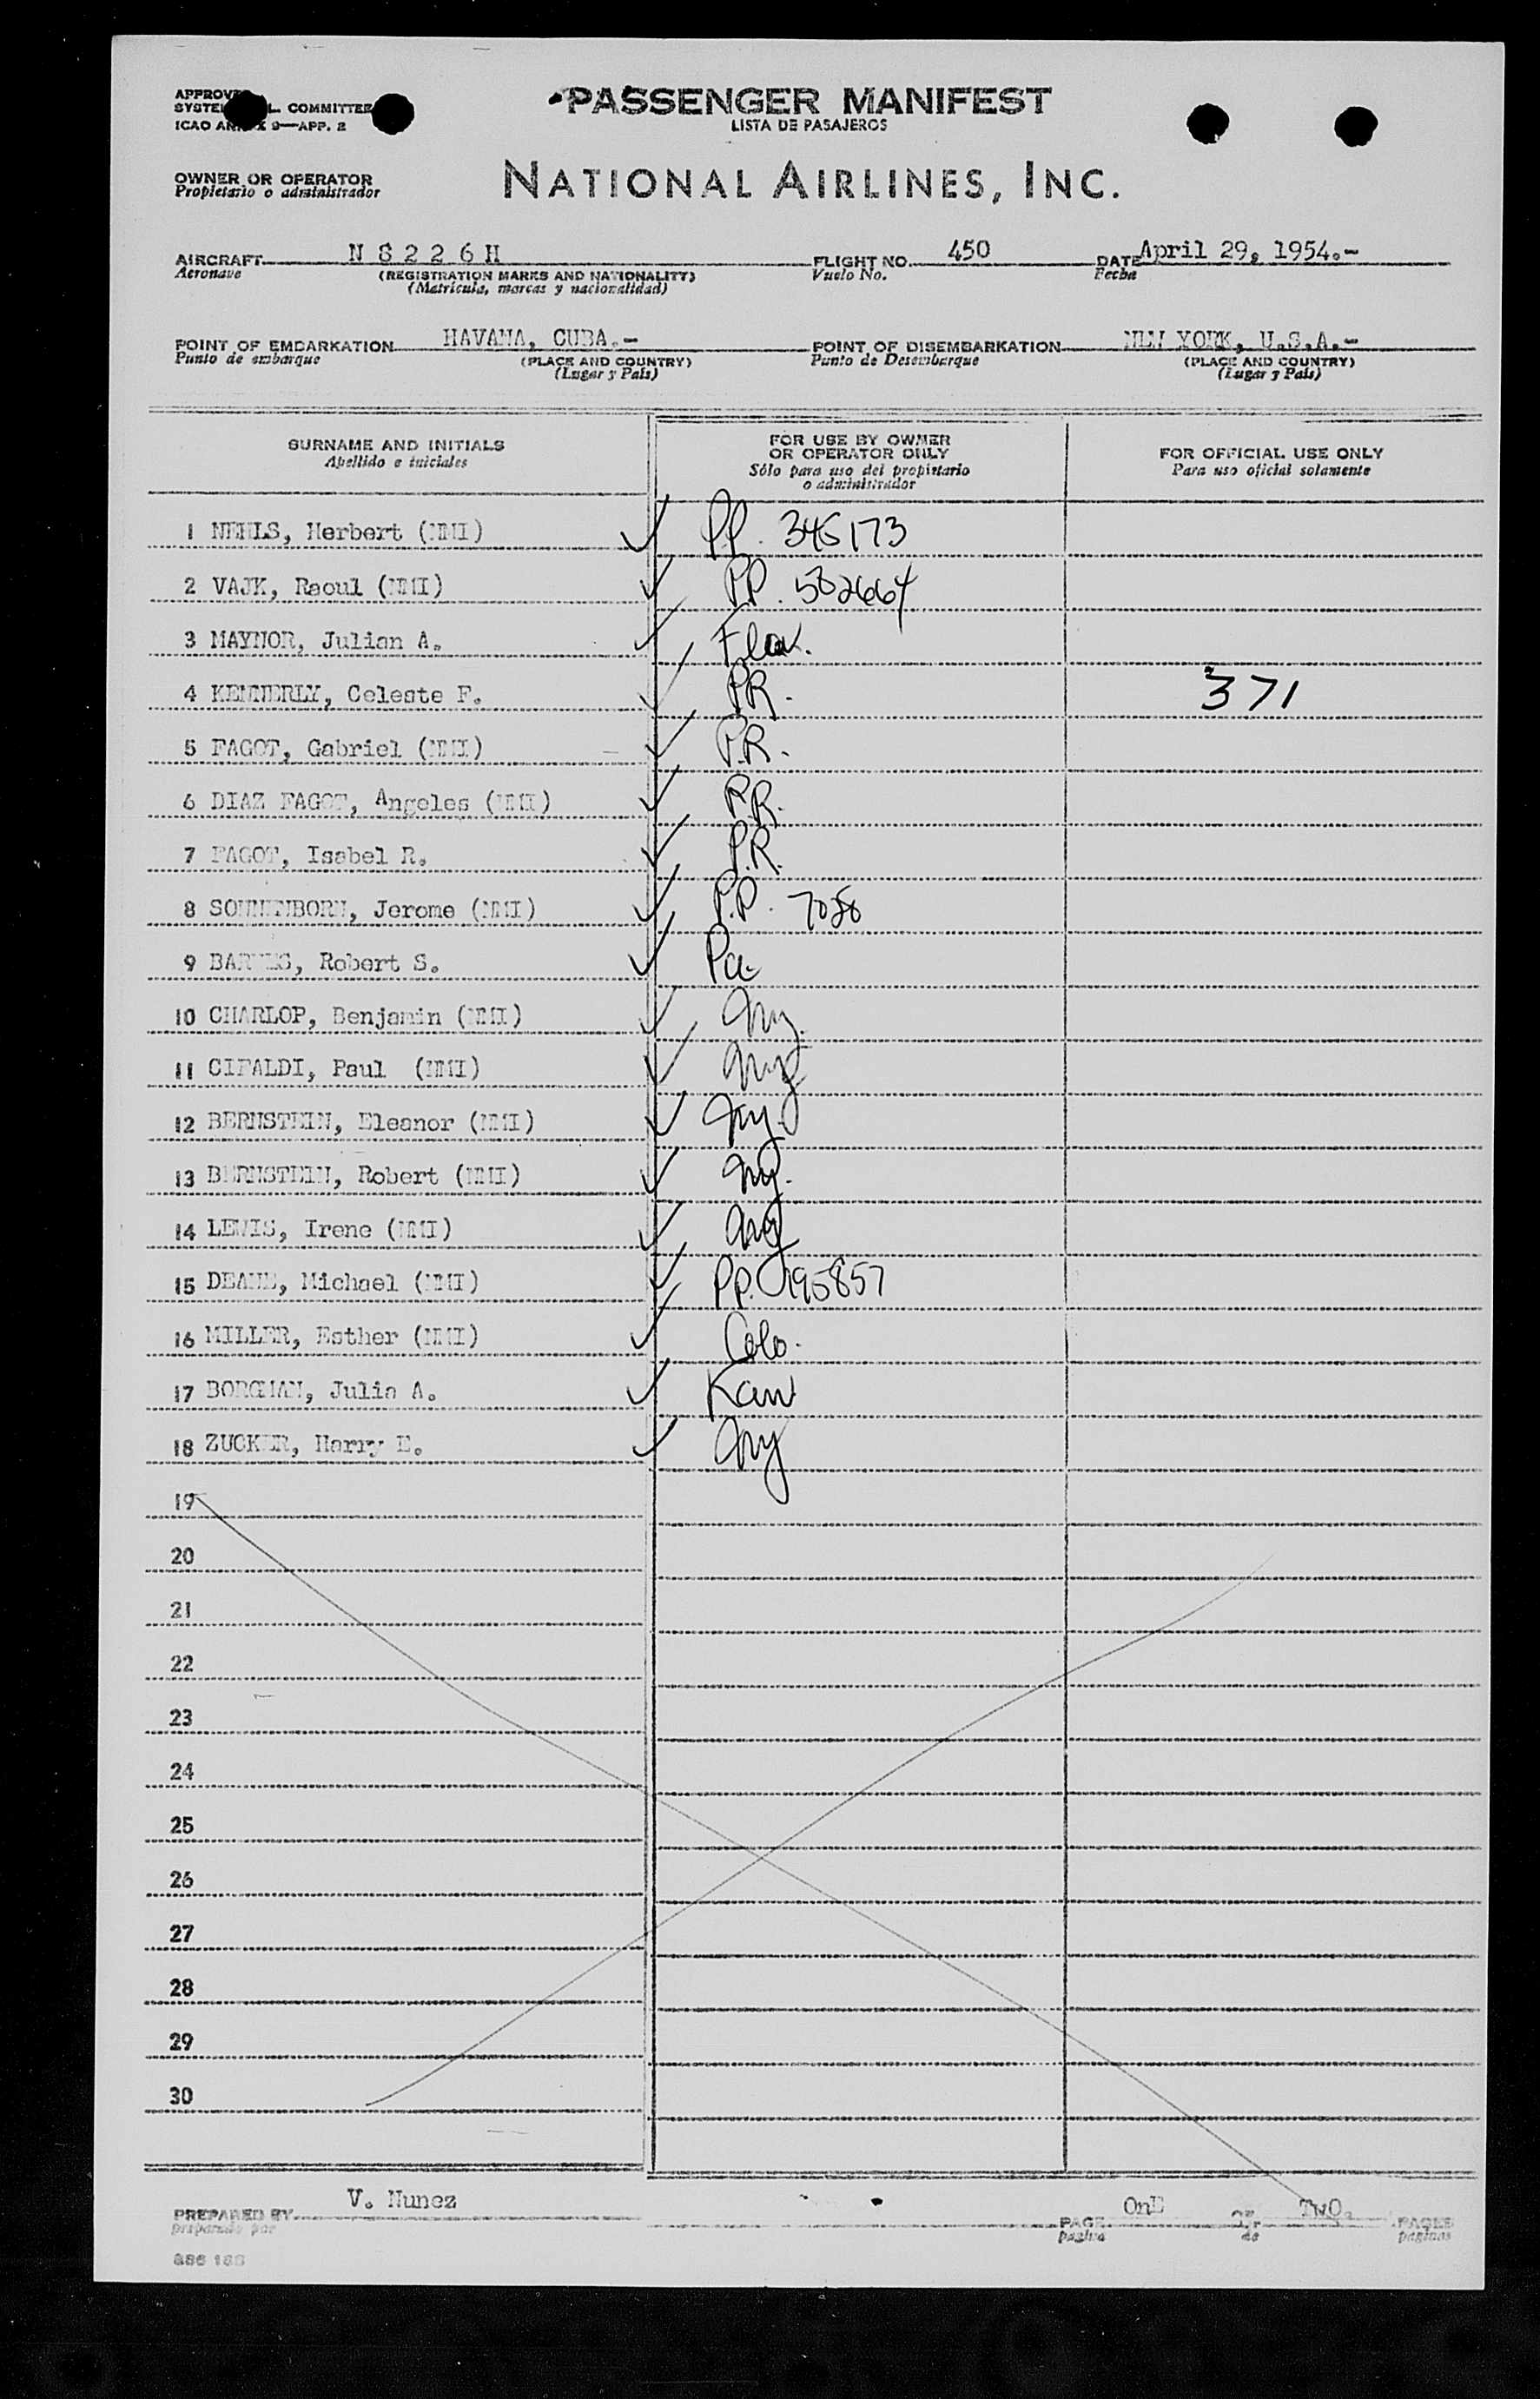 PASSENGER MANIFEST
LISTA DE PASAJEROS
COMMITTEE
ICAO 9—APP. 2
OWNER OR OPERATOR
Propietario o administrador
NATIONAL AIRLINES, INC.
AIRCRAFT N 8 2 2 6 H FLIGHT NO. 450 DATE April 29, 1954.-
Aeronave (REGISTRATION MARKS AND NATIONALITY) Vuelo No. Fecha
(Matricula, marcas y nacionalidad)
POINT OF EMBARKATION HAVANA, CUBA.- POINT OF DISEMBARKATION NEW YORK, U.S.A.-
Punto de embarque (PLACE AND COUNTRY) Punto de Desembarque (PLACE AND COUNTRY)
(Lugar y País) (Lugar y País)
SURNAME AND INITIALS
Apellido e iniciales
FOR USE BY OWNER
OR OPERATOR ONLY
Sólo para uso del propietario
o administrador
FOR OFFICIAL USE ONLY
Para uso oficial solamente
1 NEHLS, Herbert (NMI) P.P. 345173
2 VAJK, Raoul (NMI) P.P.
3 MAYNOR, Julian A. Fla.
4 KENNERLY, Celeste F. P.R. 371
5 FAGOT, Gabriel (NMI) P.R.
6 DIAZ FAGOT, Angeles (NMI) P.R.
7 FAGOT, Isabel R. P.R.
8 SONNENBORN, Jerome (NMI) P.P.
9 BARNES, Robert S. Pa
10 CHARLOP, Benjamin (NMI) Ny.
11 CIFALDI, Paul (NMI) Ny
12 BERNSTEIN, Eleanor (NMI) Ny.
13 BERNSTEIN, Robert (NMI) Ny.
14 LEWIS, Irene (NMI) Ny
15 DEANE, Michael (NMI) PP. 195857
16 MILLER, Esther (NMI) Colo.
17 BORGMAN, Julia A. Kan
18 ZUCKER, Harry E. Ny
19
20
21
22
23
24
25
26
27
28
29
30
PREPARED BY V. Nunez PAGE OnE OF TwO. PAGES
preparado por página de páginas